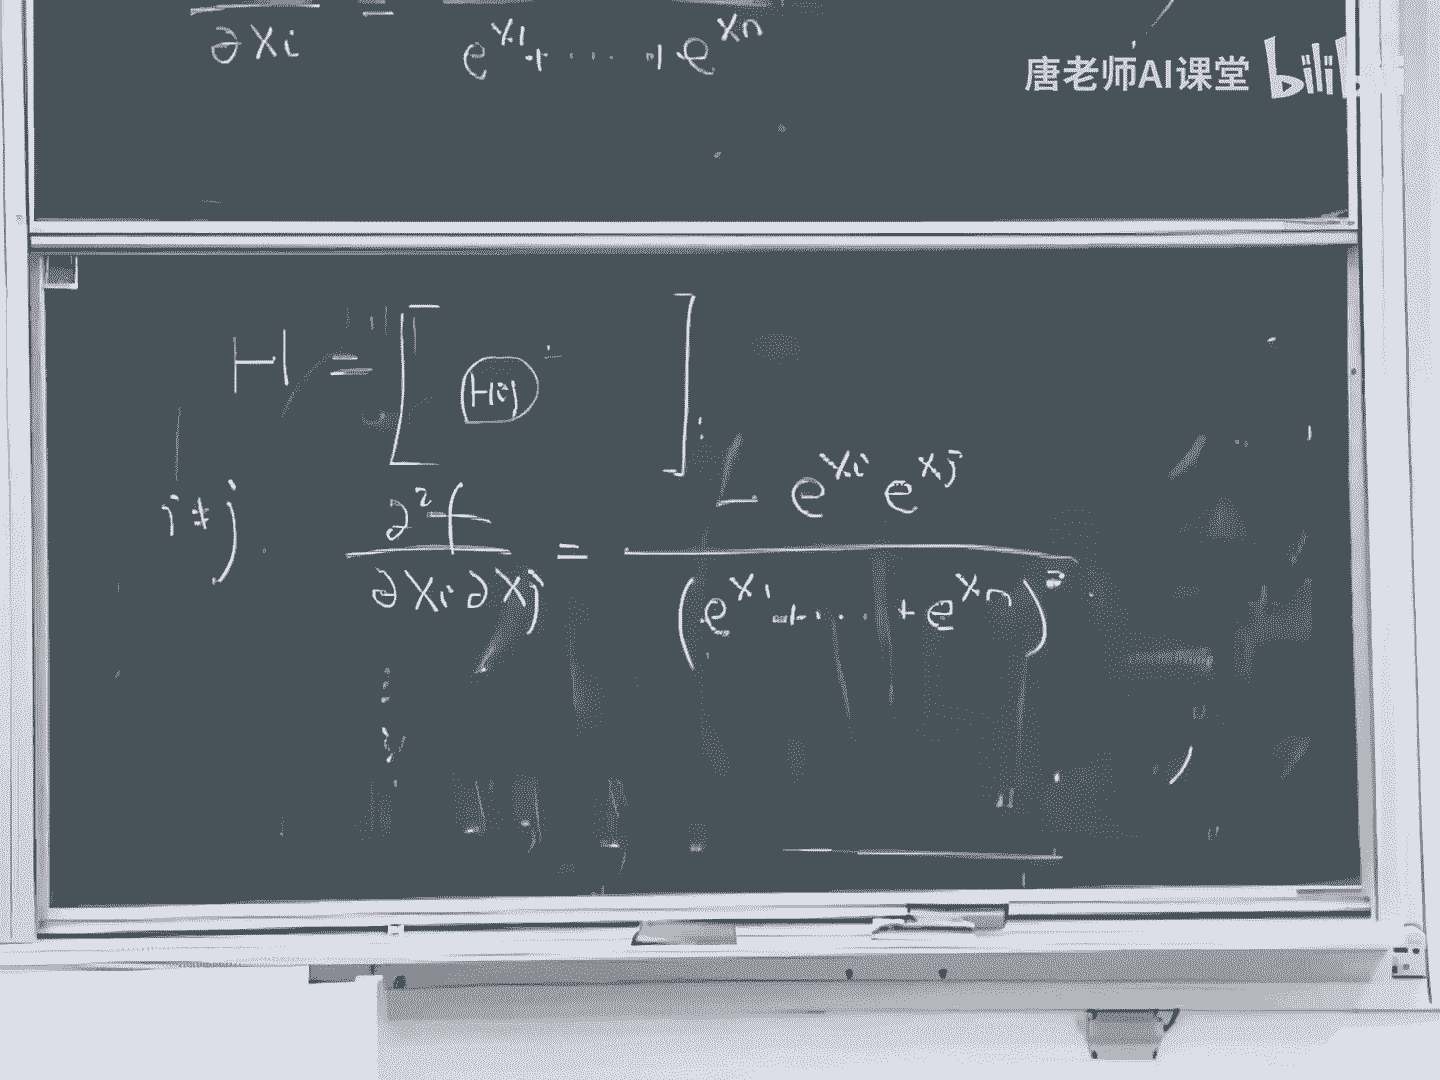 ∂xi = e^x1 + ···· + e^xn
唐老师AI课堂 bilib
H = [ Hij ]
i≠j ∂²f / ∂xi ∂xj = - e^xi e^xj / (e^x1 + ··· + e^xn)²